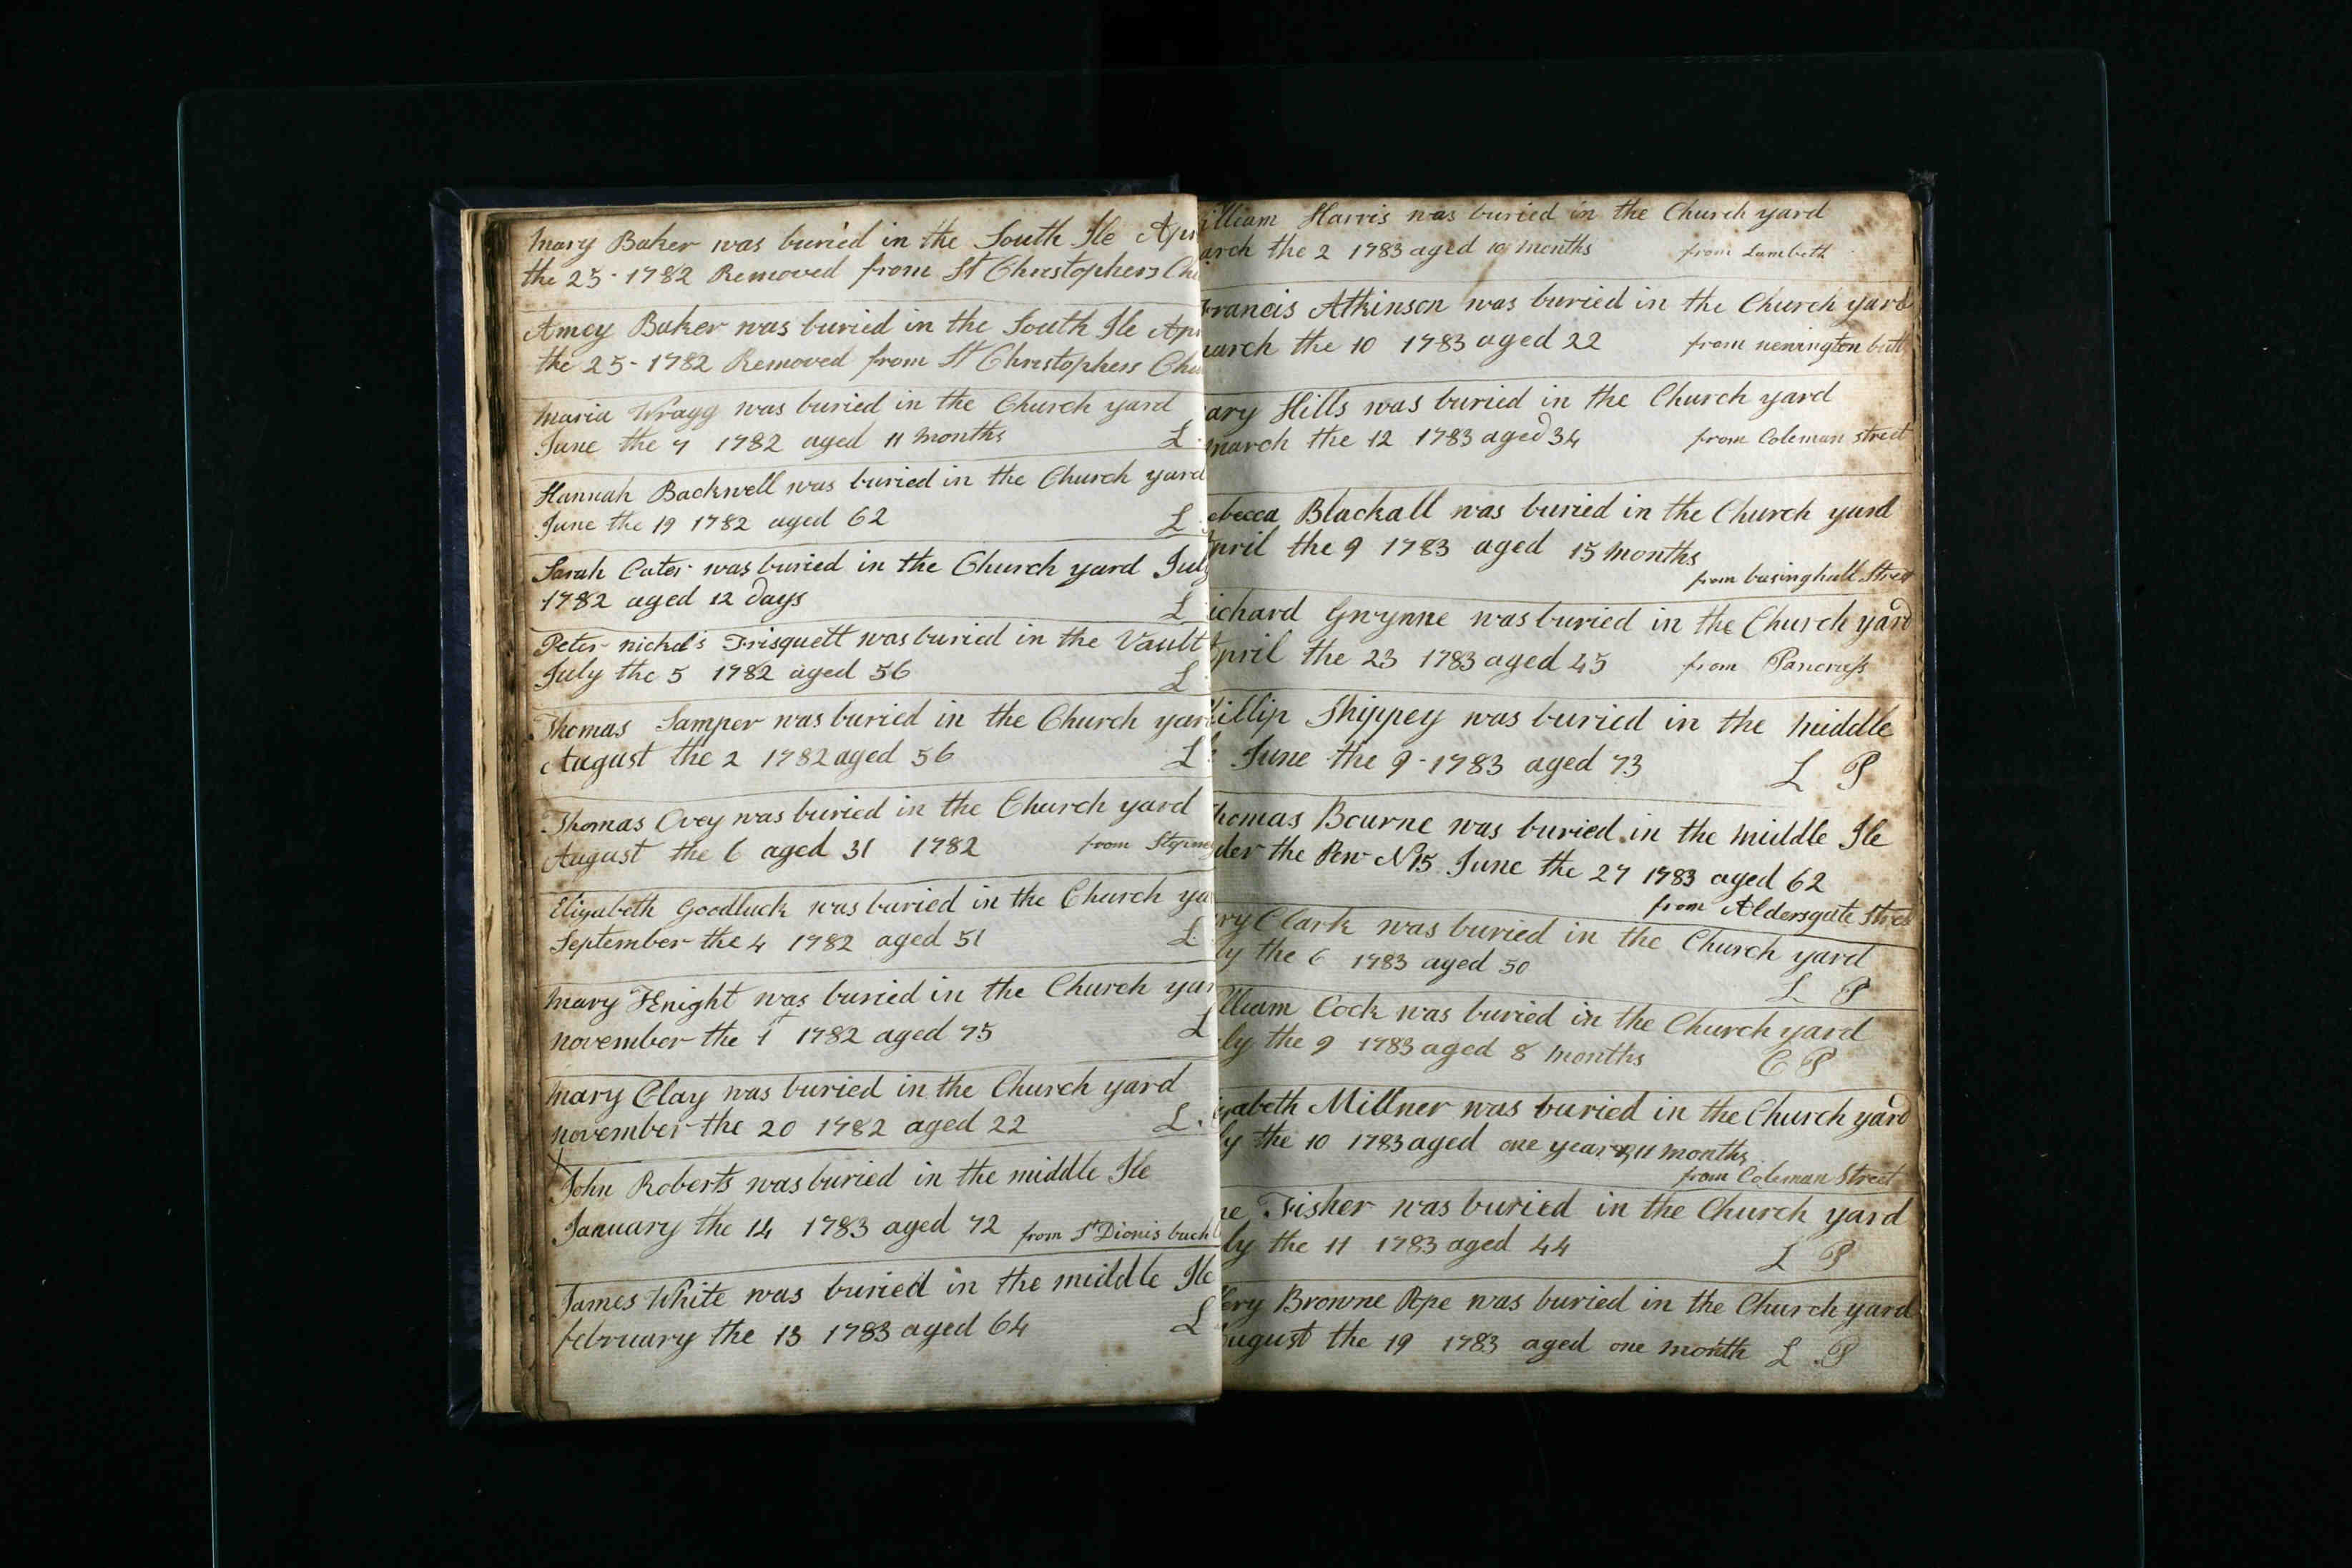 Mary Baker was buried in the South Ile Apr
the 25 - 1782 Removed from St Christophers Ch
Amey Baker was buried in the South Ile Apr
the 25 - 1782 Removed from St Christophers Chu
Maria Wragg was buried in the Church yard
June the 7 1782 aged 11 Months L
Hannah Backwell was buried in the Church yard
June the 19 1782 aged 62 L
Sarah Cater was buried in the Church yard July
1782 aged 12 days L
Peter Trisquett was buried in the Vault
July the 5 1782 aged 56 L
Thomas Samper was buried in the Church yard
August the 2 1782 aged 56 L
Thomas Ovey was buried in the Church yard
August the 6 aged 31 1782 from Stepney
Elizabeth Goodluck was buried in the Church ya
September the 4 1782 aged 51 L
Mary Knight was buried in the Church yar
November the 1 1782 aged 75 L
Mary Clay was buried in the Church yard
November the 20 1782 aged 22 L
John Roberts was buried in the middle Ile
January the 14 1783 aged 72 from St Dionis back
James White was buried in the middle Ile
february the 13 1783 aged 64 L
illiam Harris was buried in the Church yard
arch the 2 1783 aged 10 Months from Lambeth
Francis Atkinson was buried in the Church yard
march the 10 1783 aged 22 from newington butt
ary Hills was buried in the Church yard
march the 12 1783 aged 34 from Coleman street
ebecca Blackall was buried in the Church yard
April the 9 1783 aged 15 Months
from basinghall Street
ichard Gwynne was buried in the Church yard
April the 23 1783 aged 45 from Pancrass
hillip Shippey was buried in the Middle
June the 9 - 1783 aged 73 L P
homas Bourne was buried in the Middle Ile
der the Pew N 15 June the 27 1783 aged 62
from Aldersgate Street
ary Clark was buried in the Church yard
ly the 6 1783 aged 50 L P
illiam Cock was buried in the Church yard
ly the 9 1783 aged 8 Months C P
izabeth Millner was buried in the Church yard
ly the 10 1783 aged one year & 11 months
from Coleman Street
ne Fisher was buried in the Church yard
ly the 11 1783 aged 44 L P
ery Browne Pope was buried in the Church yard
august the 19 1783 aged one Month L P